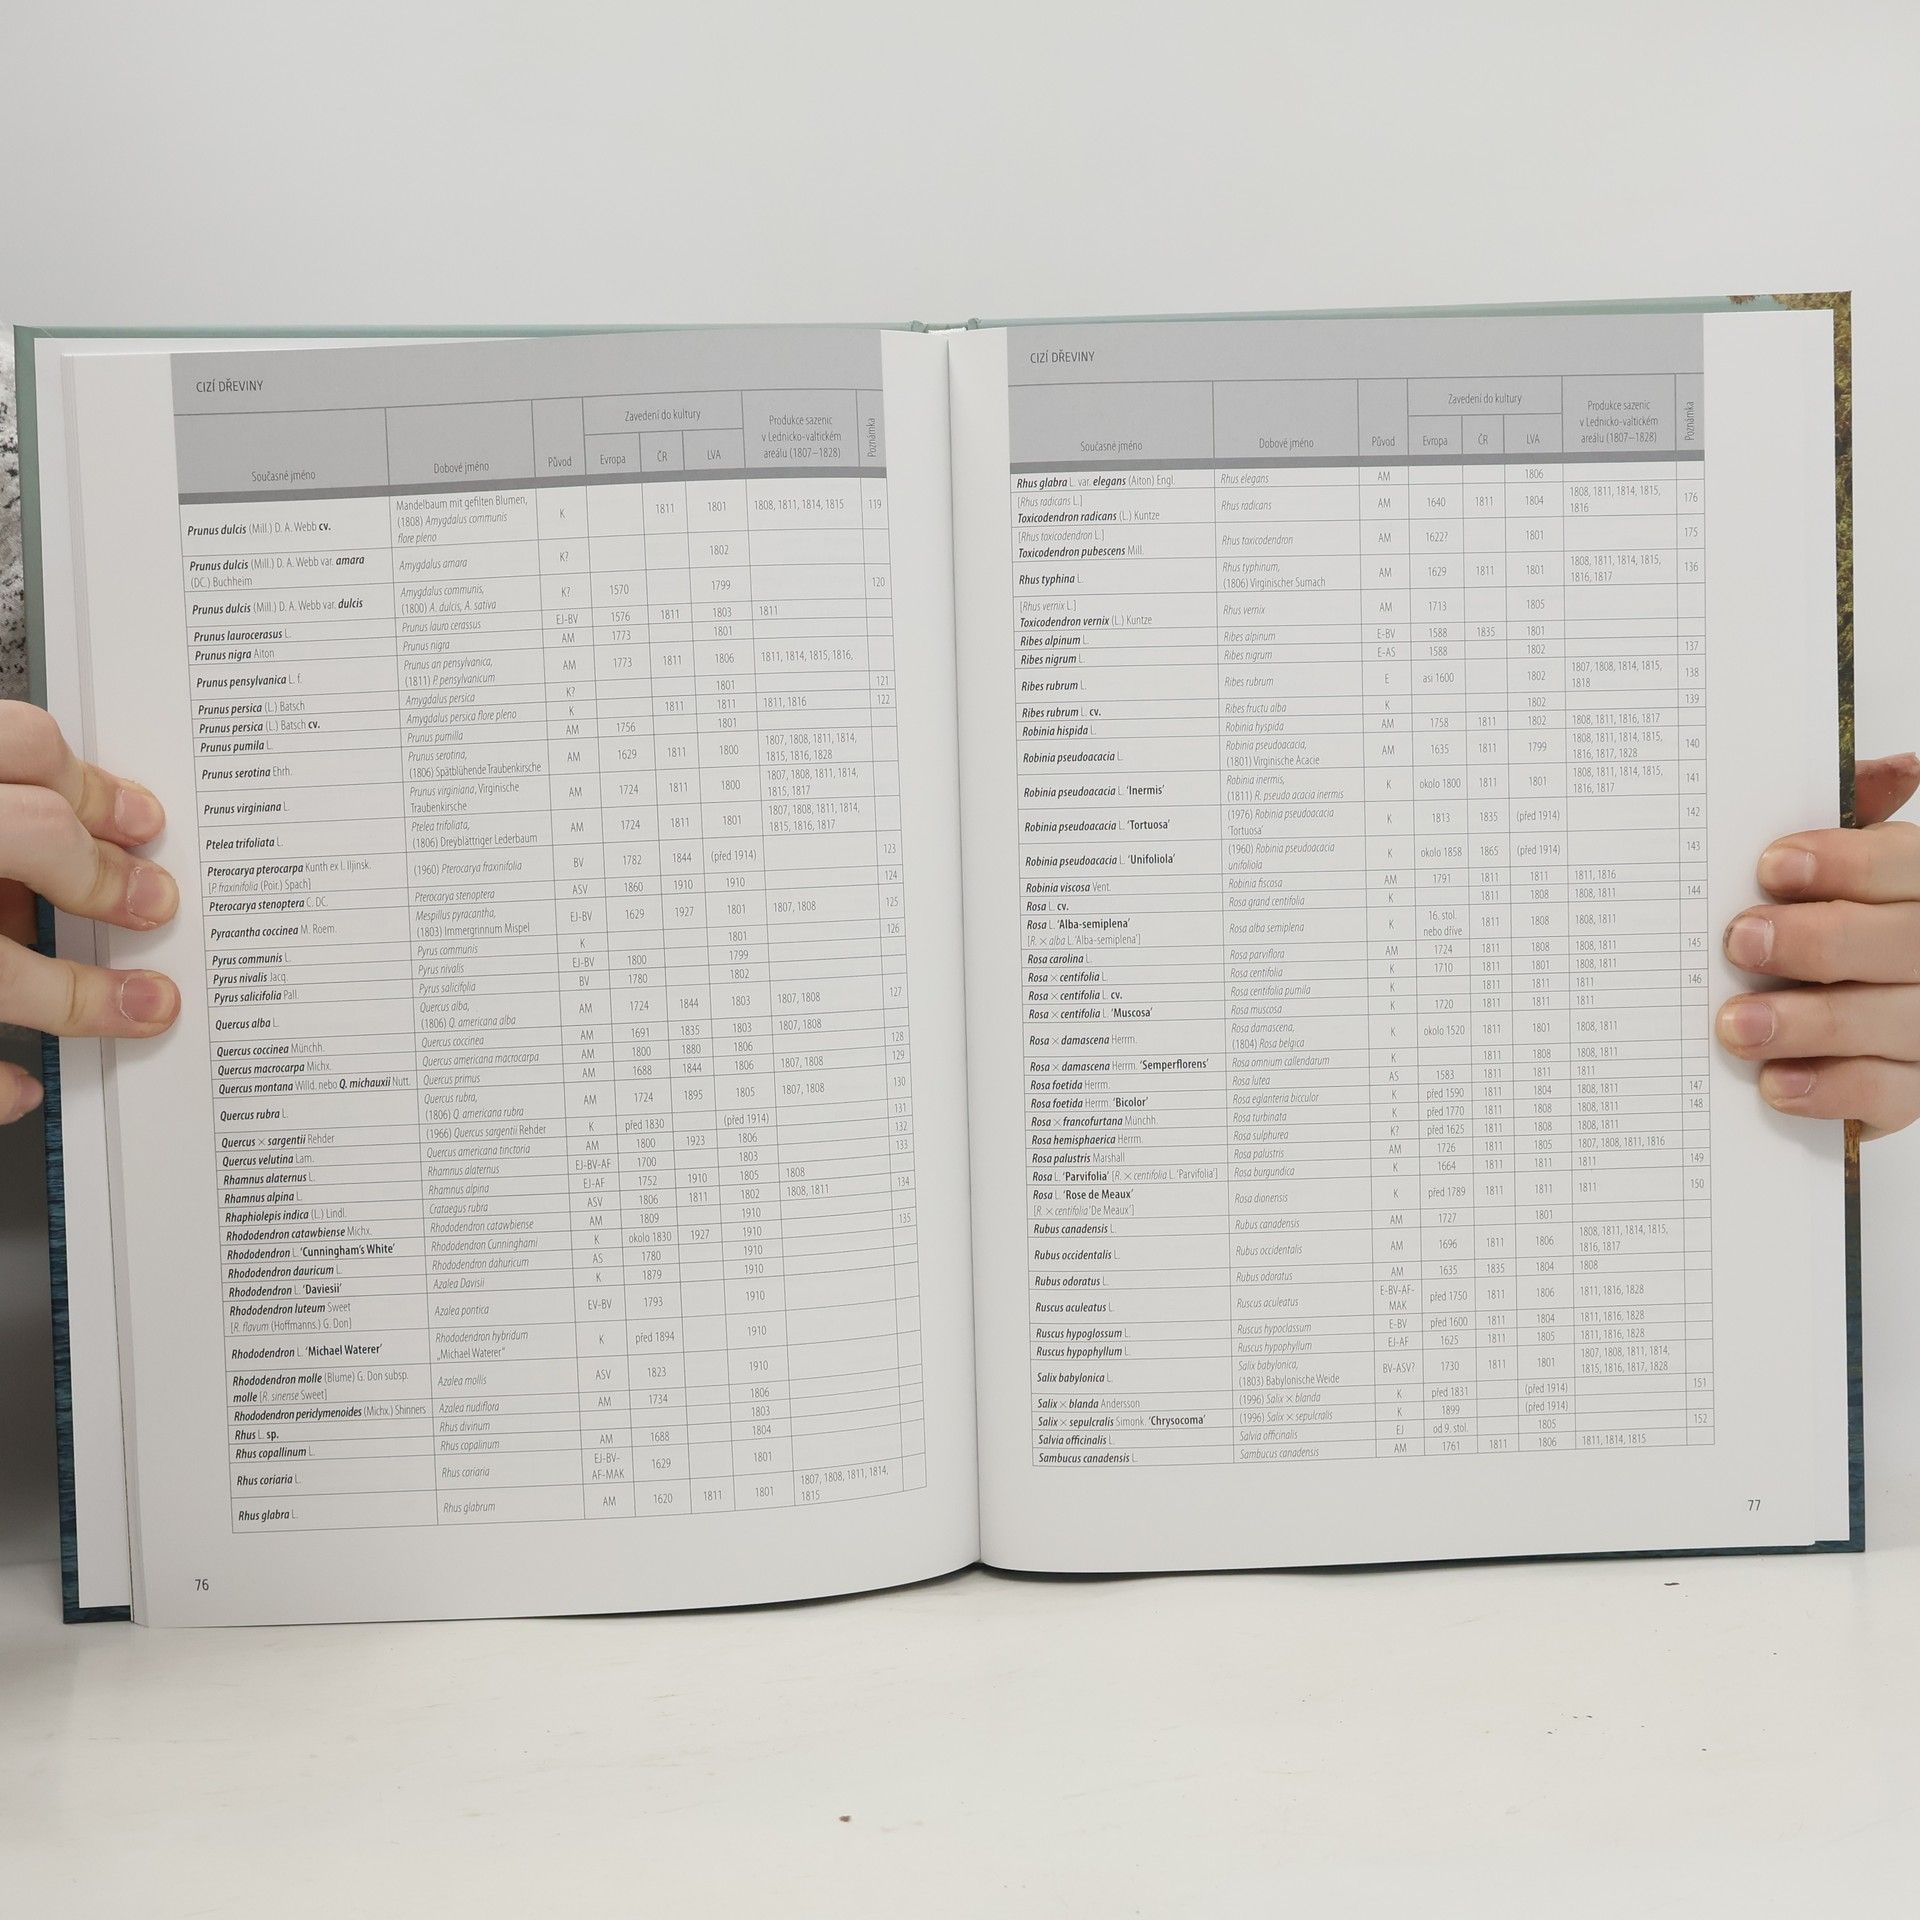 CIZÍ DŘEVINY
Současné jméno Dobové jméno Původ Zavedení do kultury Evropa ČR LVA Produkce sazenic v Lednicko-valtickém areálu (1807–1828) Poznámka
Prunus dulcis (Mill.) D. A. Webb cv. Mandelbaum mit gefilten Blumen, (1808) Amygdalus communis flore pleno K 1811 1801 1808, 1811, 1814, 1815 119
Prunus dulcis (Mill.) D. A. Webb var. amara (DC.) Buchheim Amygdalus amara K? 1802
Prunus dulcis (Mill.) D. A. Webb var. dulcis Amygdalus communis, (1800) A. dulcis, A. sativa K? 1570 1799 120
Prunus laurocerasus L. Prunus lauro cerassus EJ-BV 1576 1811 1803 1811
Prunus nigra Aiton Prunus nigra AM 1773 1801
Prunus pensylvanica L. f. Prunus an pensylvanica, (1811) P. pensylvanicum AM 1773 1811 1806 1811, 1814, 1815, 1816,
Prunus persica (L.) Batsch Amygdalus persica K? 1801 121
Prunus persica (L.) Batsch cv. Amygdalus persica flore pleno K 1811 1811 1811, 1816 122
Prunus pumila L. Prunus pumilla AM 1756 1801
Prunus serotina Ehrh. Prunus serotina, (1806) Spätblühende Traubenkirsche AM 1629 1811 1800 1807, 1808, 1811, 1814, 1815, 1816, 1828
Prunus virginiana L. Prunus virginiana, Virginische Traubenkirsche AM 1724 1811 1800 1807, 1808, 1811, 1814, 1815, 1817
Ptelea trifoliata L. Ptelea trifoliata, (1806) Dreyblättriger Lederbaum AM 1724 1811 1801 1807, 1808, 1811, 1814, 1815, 1816, 1817
Pterocarya pterocarpa Kunth ex I. Iljinsk. [P. fraxinifolia (Poir.) Spach] (1960) Pterocarya fraxinifolia BV 1782 1844 (před 1914) 123
Pterocarya stenoptera C. DC. Pterocarya stenoptera ASV 1860 1910 1910 124
Pyracantha coccinea M. Roem. Mespillus pyracantha, (1803) Immergrinnum Mispel EJ-BV 1629 1927 1801 1807, 1808 125
Pyrus communis L. Pyrus communis K 1801 126
Pyrus nivalis Jacq. Pyrus nivalis EJ-BV 1800 1799
Pyrus salicifolia Pall. Pyrus salicifolia BV 1780 1802
Quercus alba L. Quercus alba, (1806) Q. americana alba AM 1724 1844 1803 1807, 1808 127
Quercus coccinea Münchh. Quercus coccinea AM 1691 1835 1803 1807, 1808
Quercus macrocarpa Michx. Quercus americana macrocarpa AM 1800 1880 1806 128
Quercus montana Willd. nebo Q. michauxii Nutt. Quercus primus AM 1688 1844 1806 1807, 1808 129
Quercus rubra L. Quercus rubra, (1806) Q. americana rubra AM 1724 1895 1805 1807, 1808 130
Quercus × sargentii Rehder (1966) Quercus sargentii Rehder K před 1830 (před 1914) 131
Quercus velutina Lam. Quercus americana tinctoria AM 1800 1923 1806 132
Rhamnus alaternus L. Rhamnus alaternus EJ-BV-AF 1700 1803 133
Rhamnus alpina L. Rhamnus alpina EJ-AF 1752 1910 1805 1808
Rhaphiolepis indica (L.) Lindl. Crataegus rubra ASV 1806 1811 1802 1808, 1811 134
Rhododendron catawbiense Michx. Rhododendron catawbiense AM 1809 1910
Rhododendron L. ‘Cunningham’s White’ Rhododendron Cunninghami K okolo 1830 1927 1910 135
Rhododendron dauricum L. Rhododendron dahuricum AS 1780 1910
Rhododendron L. ‘Daviesii’ Azalea Davisii K 1879 1910
Rhododendron luteum Sweet [R. flavum (Hoffmanns.) G. Don] Azalea pontica EV-BV 1793 1910
Rhododendron L. ‘Michael Waterer’ Rhododendron hybridum „Michael Waterer“ K před 1894 1910
Rhododendron molle (Blume) G. Don subsp. molle [R. sinense Sweet] Azalea mollis ASV 1823 1910
Rhododendron periclymenoides (Michx.) Shinners Azalea nudiflora AM 1734 1806
Rhus L. sp. Rhus divinum 1803
Rhus copallinum L. Rhus copalinum AM 1688 1804
Rhus coriaria L. Rhus coriaria EJ-BV-AF-MAK 1629 1801
Rhus glabra L. Rhus glabrum AM 1620 1811 1801 1807, 1808, 1811, 1814, 1815
76
CIZÍ DŘEVINY
Současné jméno Dobové jméno Původ Zavedení do kultury Evropa ČR LVA Produkce sazenic v Lednicko-valtickém areálu (1807–1828) Poznámka
Rhus glabra L. var. elegans (Aiton) Engl. Rhus elegans AM 1806
[Rhus radicans L.] Toxicodendron radicans (L.) Kuntze Rhus radicans AM 1640 1811 1804 1808, 1811, 1814, 1815, 1816 176
[Rhus toxicodendron L.] Toxicodendron pubescens Mill. Rhus toxicodendron AM 1622? 1801 175
Rhus typhina L. Rhus typhinum, (1806) Virginischer Sumach AM 1629 1811 1801 1808, 1811, 1814, 1815, 1816, 1817 136
[Rhus vernix L.] Toxicodendron vernix (L.) Kuntze Rhus vernix AM 1713 1805
Ribes alpinum L. Ribes alpinum E-BV 1588 1835 1801
Ribes nigrum L. Ribes nigrum E-AS 1588 1802 137
Ribes rubrum L. Ribes rubrum E asi 1600 1802 1807, 1808, 1814, 1815, 1818 138
Ribes rubrum L. cv. Ribes fructu alba K 1802 139
Robinia hispida L. Robinia hyspida AM 1758 1811 1802 1808, 1811, 1816, 1817
Robinia pseudoacacia L. Robinia pseudoacacia, (1801) Virginische Acacie AM 1635 1811 1799 1808, 1811, 1814, 1815, 1816, 1817, 1828 140
Robinia pseudoacacia L. ‘Inermis’ Robinia inermis, (1811) R. pseudo acacia inermis K okolo 1800 1811 1801 1808, 1811, 1814, 1815, 1816, 1817 141
Robinia pseudoacacia L. ‘Tortuosa’ (1976) Robinia pseudoacacia ‘Tortuosa’ K 1813 1835 (před 1914) 142
Robinia pseudoacacia L. ‘Unifoliola’ (1960) Robinia pseudoacacia unifoliola K okolo 1858 1865 (před 1914) 143
Robinia viscosa Vent. Robinia fiscosa AM 1791 1811 1811 1811, 1816
Rosa L. cv. Rosa grand centifolia K 1811 1808 1808, 1811 144
Rosa L. ‘Alba-semiplena’ [R. × alba L. ‘Alba-semiplena’] Rosa alba semiplena K 16. stol. nebo dříve 1811 1808 1808, 1811
Rosa carolina L. Rosa parviflora AM 1724 1811 1808 1808, 1811 145
Rosa × centifolia L. Rosa centifolia K 1710 1811 1801 1808, 1811
Rosa × centifolia L. cv. Rosa centifolia pumila K 1811 1811 1811 146
Rosa × centifolia L. ‘Muscosa’ Rosa muscosa K 1720 1811 1811 1811
Rosa × damascena Herrm. Rosa damascena, (1804) Rosa belgica K okolo 1520 1811 1801 1808, 1811
Rosa × damascena Herrm. ‘Semperflorens’ Rosa omnium callendarum K 1811 1808 1808, 1811
Rosa foetida Herrm. Rosa lutea AS 1583 1811 1811 1811
Rosa foetida Herrm. ‘Bicolor’ Rosa eglanteria bicculor K před 1590 1811 1804 1808, 1811 147
Rosa × francofurtana Münchh. Rosa turbinata K před 1770 1811 1808 1808, 1811 148
Rosa hemisphaerica Herrm. Rosa sulphurea K? před 1625 1811 1808 1808, 1811
Rosa palustris Marshall Rosa palustris AM 1726 1811 1805 1807, 1808, 1811, 1816
Rosa L. ‘Parvifolia’ [R. × centifolia L. ‘Parvifolia’] Rosa burgundica K 1664 1811 1811 1811 149
Rosa L. ‘Rose de Meaux’ [R. × centifolia ‘De Meaux’] Rosa dionensis K před 1789 1811 1811 1811 150
Rubus canadensis L. Rubus canadensis AM 1727 1801
Rubus occidentalis L. Rubus occidentalis AM 1696 1811 1806 1808, 1811, 1814, 1815, 1816, 1817
Rubus odoratus L. Rubus odoratus AM 1635 1835 1804 1808
Ruscus aculeatus L. Ruscus aculeatus E-BV-AF-MAK před 1750 1811 1806 1811, 1816, 1828
Ruscus hypoglossum L. Ruscus hypoclassum E-BV před 1600 1811 1804 1811, 1816, 1828
Ruscus hypophyllum L. Ruscus hypophyllum EJ-AF 1625 1811 1805 1811, 1816, 1828
Salix babylonica L. Salix babylonica, (1803) Babylonische Weide BV-ASV? 1730 1811 1801 1807, 1808, 1811, 1814, 1815, 1816, 1817, 1828
Salix × blanda Andersson (1996) Salix × blanda K před 1831 (před 1914) 151
Salix × sepulcralis Simonk. ‘Chrysocoma’ (1996) Salix × sepulcralis K 1899 (před 1914)
Salvia officinalis L. Salvia officinalis EJ od 9. stol. 1805 152
Sambucus canadensis L. Sambucus canadensis AM 1761 1811 1806 1811, 1814, 1815
77